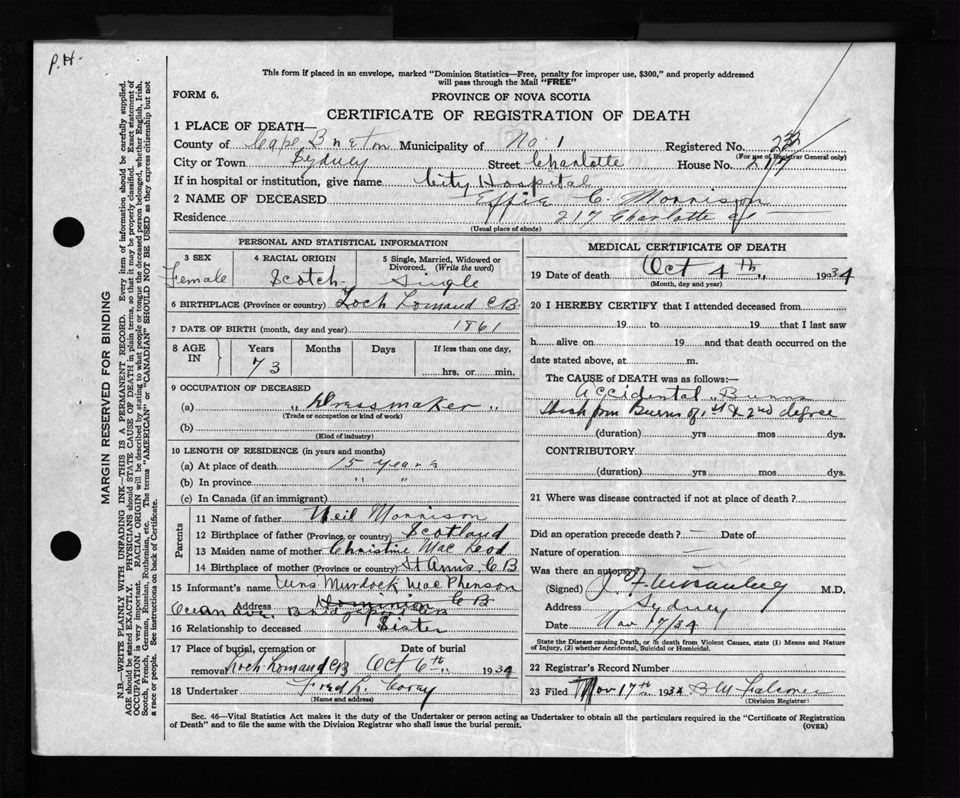 P.H.
This form if placed in an envelope, marked "Dominion Statistics—Free, penalty for improper use, $300," and properly addressed
will pass through the Mail "FREE"
FORM 6.
PROVINCE OF NOVA SCOTIA
CERTIFICATE OF REGISTRATION OF DEATH
1 PLACE OF DEATH—
County of Cape Breton Municipality of No. 1 Registered No.
(For use of Registrar General only)
City or Town Sydney Street Charlotte House No. 217
If in hospital or institution, give name City Hospital
2 NAME OF DECEASED Effie C. Morrison
Residence 217 Charlotte St
(Usual place of abode)
PERSONAL AND STATISTICAL INFORMATION
3 SEX Female
4 RACIAL ORIGIN Scotch
5 Single, Married, Widowed or Divorced. (Write the word) Single
6 BIRTHPLACE (Province or country) Loch Lomand C B
7 DATE OF BIRTH (month, day and year) 1861
8 AGE IN Years Months Days If less than one day,
73 hrs. or min.
9 OCCUPATION OF DECEASED
(a) " Dressmaker "
(Trade or occupation or kind of work)
(b)
(Kind of industry)
10 LENGTH OF RESIDENCE (in years and months)
(a) At place of death 15 years
(b) In province " "
(c) In Canada (if an immigrant)
Parents
11 Name of father Neil Morrison
12 Birthplace of father (Province or country) Scotland
13 Maiden name of mother Christine Mac Leod
14 Birthplace of mother (Province or country) St Anns C B
15 Informant's name Mrs. Murdock MacPherson
Address Dominion C B
Ocean Ave.
16 Relationship to deceased Sister
17 Place of burial, cremation or removal Loch Lomand CB
Date of burial Oct 6th, 1934
18 Undertaker Fred L.
(Name and address)
MEDICAL CERTIFICATE OF DEATH
19 Date of death Oct 4th, 1934
(Month, day and year)
20 I HEREBY CERTIFY that I attended deceased from
19 to 19 that I last saw
h alive on 19 and that death occurred on the
date stated above, at m.
The CAUSE of DEATH was as follows:—
Accidental Burns
Shock from Burns of 1st & 2nd degree
(duration) yrs mos dys.
CONTRIBUTORY
(duration) yrs mos dys.
21 Where was disease contracted if not at place of death?
Did an operation precede death? — Date of
Nature of operation —
Was there an autopsy
(Signed) M.D.
Address Sydney
Date Nov 17/34
State the Disease causing Death, or in death from Violent Causes, state (1) Means and Nature
of Injury, (2) whether Accidental, Suicidal or Homicidal.
22 Registrar's Record Number
23 Filed Nov 17th 1934 Falconer
(Division Registrar)
Sec. 46—Vital Statistics Act makes it the duty of the Undertaker or person acting as Undertaker to obtain all the particulars required in the "Certificate of Registration
of Death" and to file the same with the Division Registrar who shall issue the burial permit.
(OVER)
MARGIN RESERVED FOR BINDING
N.B.—WRITE PLAINLY WITH UNFADING INK—THIS IS A PERMANENT RECORD. Every item of information should be carefully supplied.
AGE should be stated EXACTLY. PHYSICIANS should STATE CAUSE OF DEATH in plain terms, so that it may be properly classified. Exact statement of
OCCUPATION is very important. RACIAL ORIGIN will be described by stating to what people or tongue the deceased person belonged, whether English, Irish,
Scotch, French, German, Russian, Ruthenian, etc. The terms "AMERICAN" or "CANADIAN" SHOULD NOT BE USED as they express citizenship but not
a race or people. See instructions on back of Certificate.